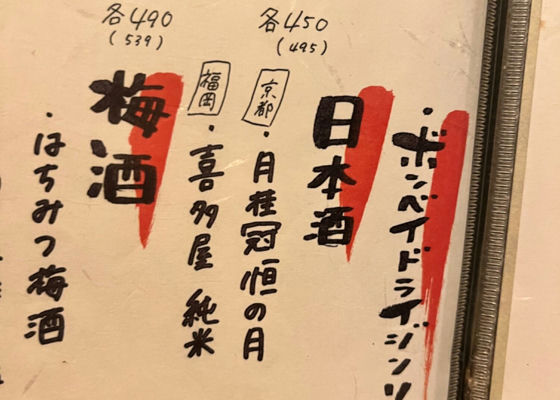 ・ボンベイドライジンソ
日本酒
各450
(495)
京都
・月桂冠 恒の月
福岡
・喜多屋 純米
梅酒
各490
(539)
・はちみつ梅酒